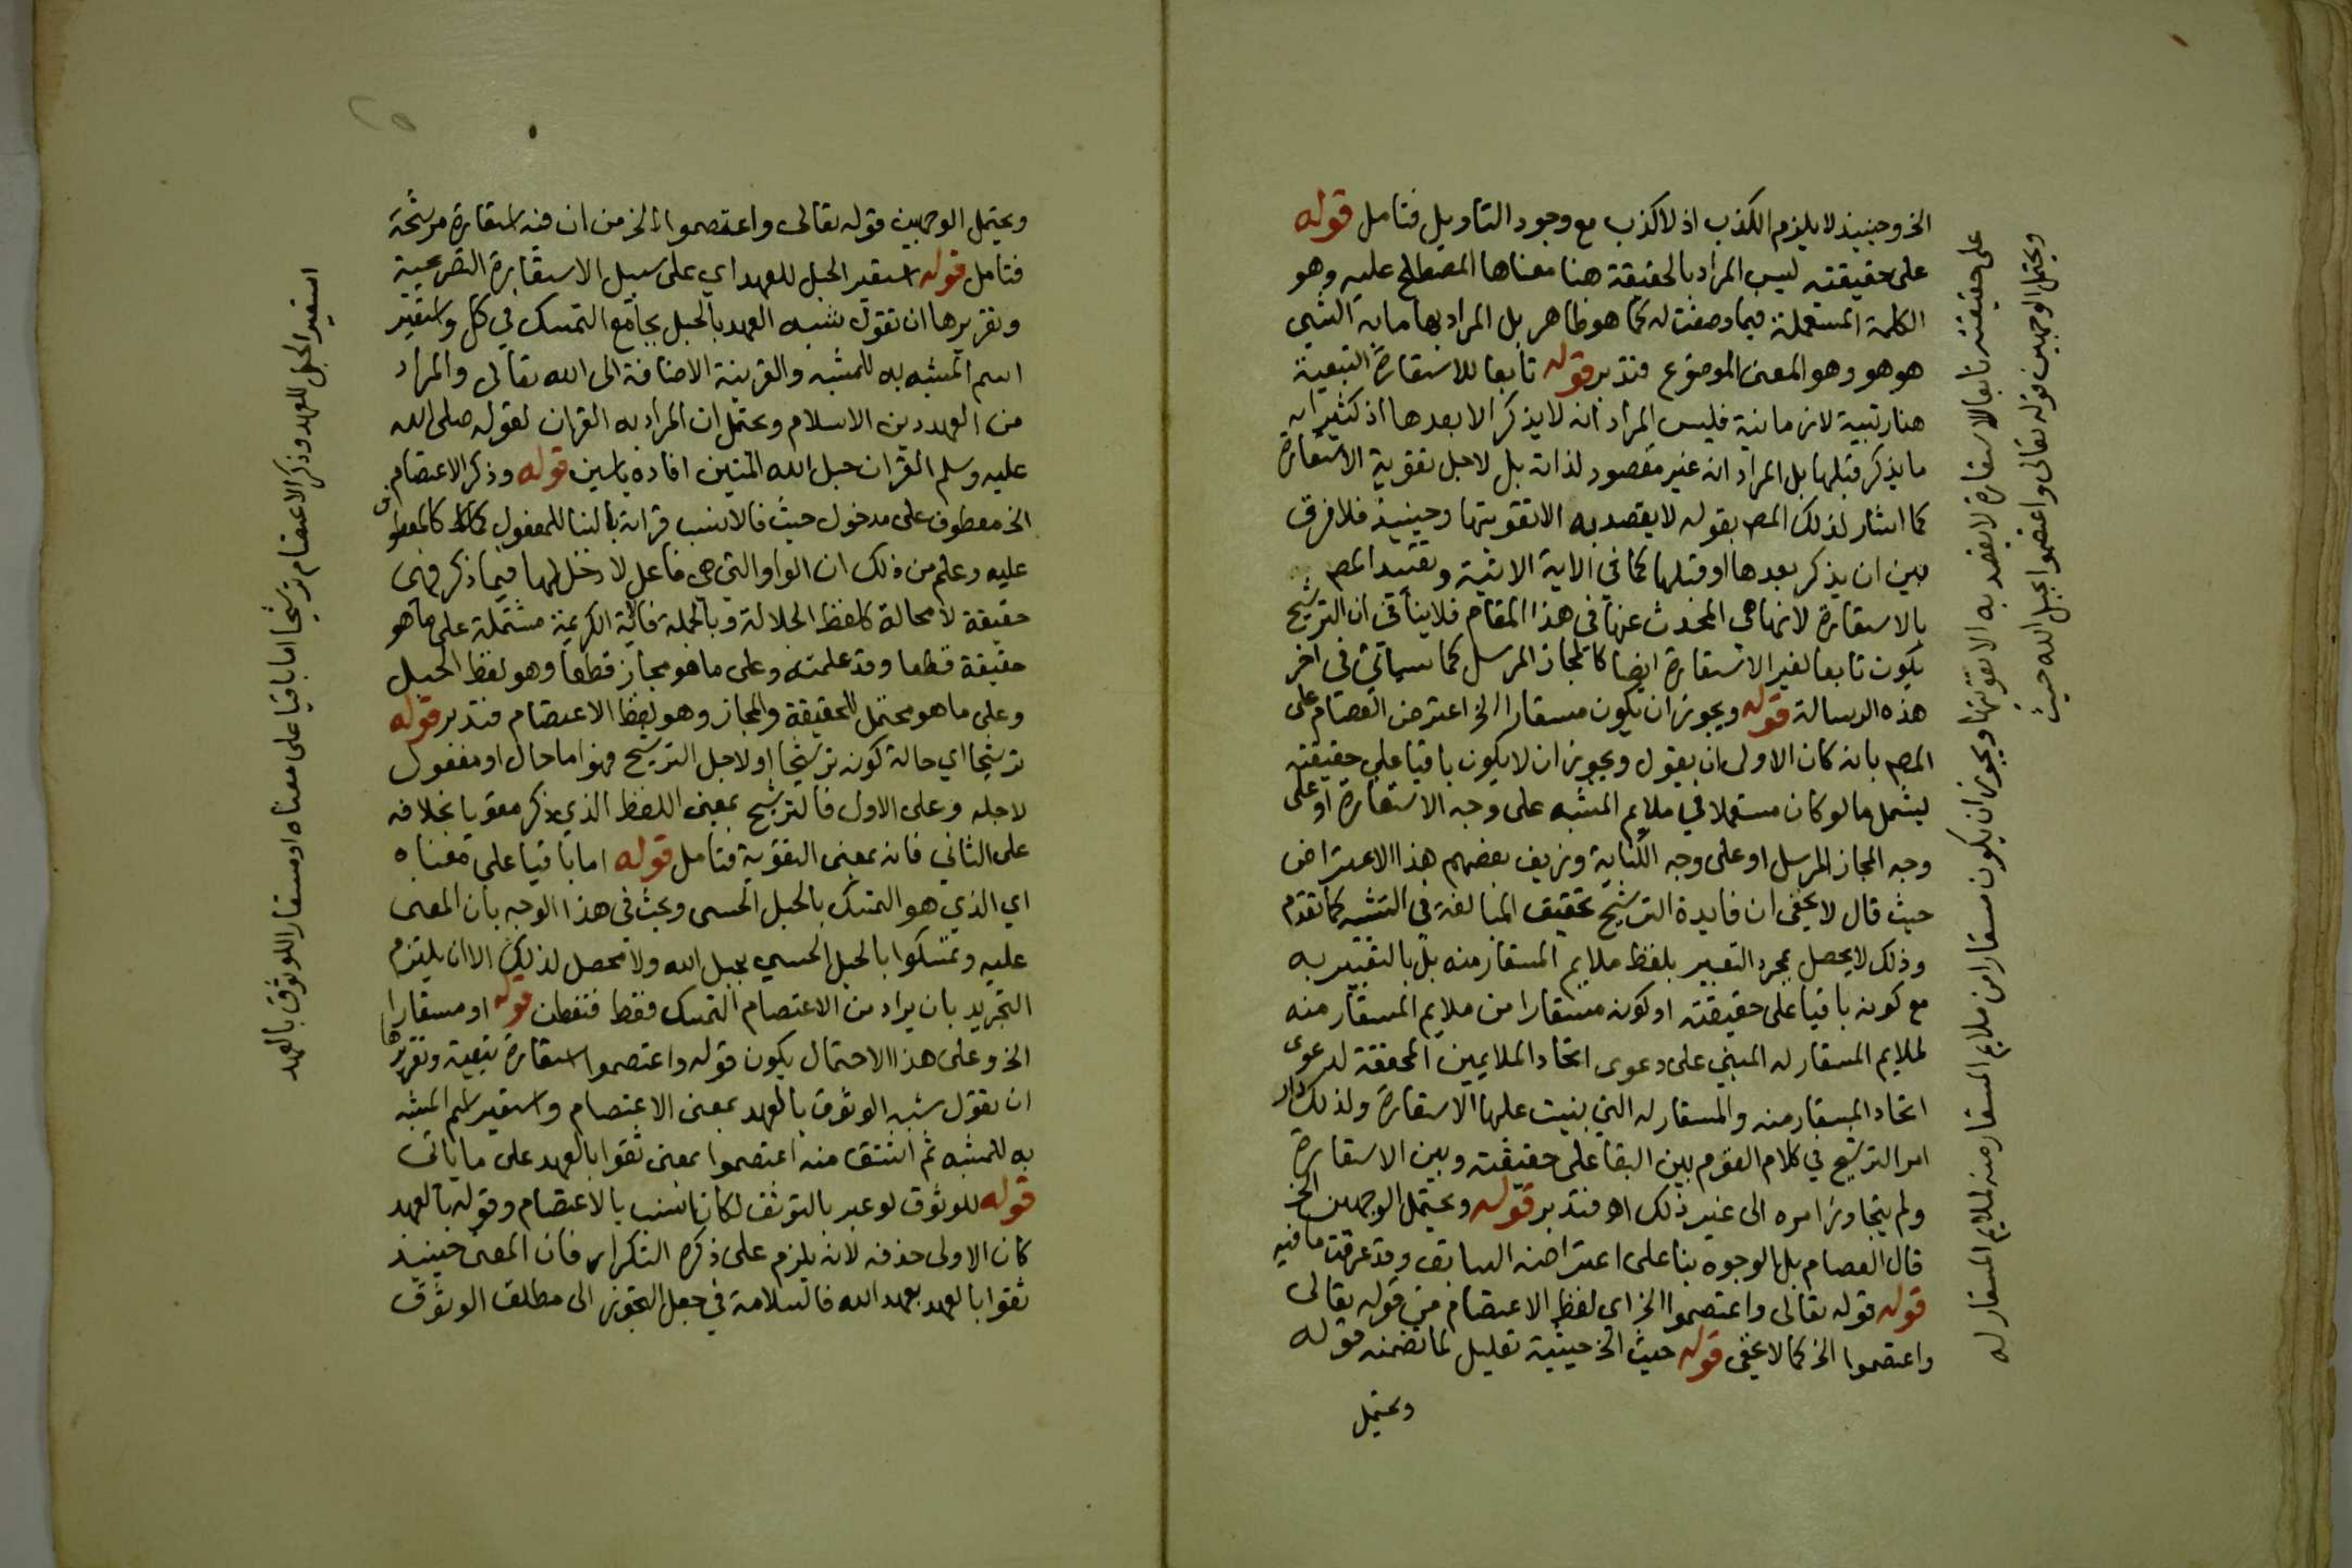 الخ وحينيذ لا يلزم الكذب اذ لا كذب مع وجود التاويل فتامل قوله
على حقيقته ليس المراد بالحقيقة هنا معناها المصطلح عليه وهو
الكلمة المستعملة فيما وضعت له كما هو ظاهر بل المراد بها ما به الشي
هو هو وهو المعنى الموضوع فتدبر قوله تابعا للاستعارة التبعية
هنا رتبية لا زمانية فليس المراد انه لا يذكر الا بعدها اذ كثيرا
ما يذكر قبلها بل المراد انه غير مقصود لذاته بل لاجل تقوية الاستعارة
كما اشار لذلك المص بقوله لا يقصد به الا تقويتها وحينيذ فلا فرق
بين ان يذكر بعدها او قبلها كما في الاية الاتية وتقييد المص
بالاستعارة لانها هي المحدث عنها في هذا المقام فلا ينافى ان الترشيح
يكون تابعا لغير الاستعارة ايضا كالمجاز المرسل كما سياتي فى اخر
هذه الرسالة قوله ويجوز ان يكون مستعارا الخ اعترض العصام على
المص بانه كان الاولى ان يقول ويجوز ان لا يكون باقيا على حقيقته
ليشمل ما لو كان مستعملا في ملايم المشبه على وجه الاستعارة او على
وجه المجاز المرسل او على وجه الكناية وزيف بعضهم هذا الاعتراض
حيث قال لا يخفى ان فايدة الترشيح تحقيق المبالغة في التشبيه كما تقدم
وذلك لا يحصل بمجرد التعبير بلفظ ملايم المستعار منه بل بالتعبير به
مع كونه باقيا على حقيقته او كونه مستعارا من ملايم المستعار منه
لملايم المستعار له المبني على دعوى اتحاد الملايمين المحققة لدعوى
اتحاد المستعار منه والمستعار له التي بنيت عليها الاستعارة ولذلك دار
امر الترشيح في كلام القوم بين البقا على حقيقته وبين الاستعارة
ولم يتجاوز امره الى غير ذلك اه فتدبر قوله ويحتمل الوجهين الخ
قال العصام بل الوجوه بنا على اعتراضه السابق وقد عرفت ما فيه
قوله قوله تعالى واعتصموا الخ اي لفظ الاعتصام من قوله تعالى
واعتصموا الخ كما لا يخفى قوله حيث الخ حيثية تعليل لما تضمنه قوله
ويحتمل
على حقيقته تابعا للاستعارة لا يقصد به الا تقويتها ويجوز ان يكون مستعارا من ملايم المستعار منه لملايم المستعار له
ويحتمل الوجهين قوله تعالى واعتصموا بحبل الله حيث
ويحتمل الوجهين قوله تعالى واعتصموا الخ من ان فيه استعارة مرشحة
فتامل قوله استعير الحبل للعهد اي على سبيل الاستعارة التصريحية
وتقريرها ان تقول شبه العهد بالحبل بجامع التمسك في كل واستعير
اسم المشبه به للمشبه والقرينة الاضافة الى الله تعالى والمراد
من العهد دين الاسلام ويحتمل ان المراد به القران لقوله صلى الله
عليه وسلم القران حبل الله المتين افاده ياسين قوله وذكر الاعتصام
الخ معطوف على مدخول حيث فالانسب قراته بالبنا للمفعول كالمعطوف
عليه وعلم من ذلك ان الواو التي هي فاعل لا دخل لها فيما ذكر فهى
حقيقة لا محالة كلفظ الجلالة وبالجملة فالاية الكريمة مشتملة على ما هو
حقيقة قطعا وقد علمته وعلى ما هو مجاز قطعا وهو لفظ الحبل
وعلى ما هو محتمل للحقيقة والمجاز وهو لفظ الاعتصام فتدبر قوله
ترشيحا اي حالة كونه ترشيحا او لاجل الترشيح فهو اما حال او مفعول
لاجله وعلى الاول فالترشيح بمعنى اللفظ الذي ذكر مقويا بخلافه
على الثاني فانه بمعنى التقوية فتامل قوله اما باقيا على معناه
اي الذي هو التمسك بالحبل الحسى وبحث فى هذا الوجه بان المعنى
عليه وتمسكوا بالحبل الحسي بحبل الله ولا محصل لذلك الا ان يلتزم
التجريد بان يراد من الاعتصام التمسك فقط فتفطن قوله او مستعارا
الخ وعلى هذا الاحتمال يكون قوله واعتصموا استعارة تبعية وتقريرها
ان تقول شبه الوثوق بالعهد بمعنى الاعتصام واستعير اسم المشبه
به للمشبه ثم اشتق منه اعتصموا بمعنى ثقوا بالعهد على ما ياتى
قوله للوثوق لو عبر بالتوثق لكان انسب بالاعتصام وقوله بالعهد
كان الاولى حذفه لانه يلزم على ذكره التكرار فان المعنى حينيذ
ثقوا بالعهد بعهد الله فالسلامة في جعل التجوز الى مطلق الوثوق
استعير الحبل للعهد وذكر الاعتصام ترشيحا اما باقيا على معناه او مستعارا للوثوق بالعهد